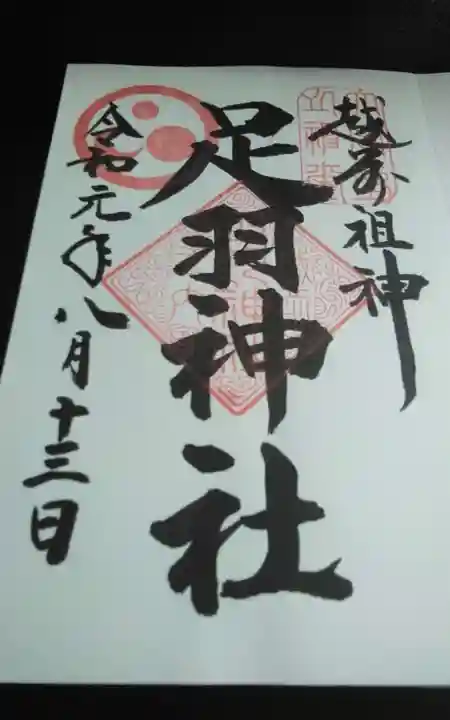 越前祖神
足羽神社
令和元年八月十三日